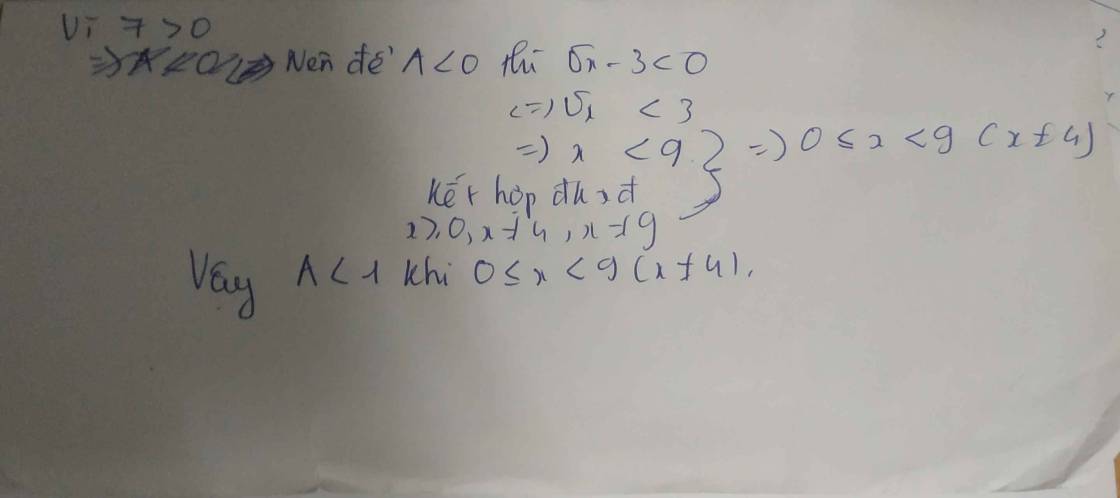 Vì 7 > 0
=> A < 0 => Nên để A < 0 thì √x - 3 < 0
<=> √x < 3
=> x < 9 } => 0 ≤ x < 9 (x ≠ 4)
Kết hợp đk xđ
x ≥ 0, x ≠ 4, x ≠ 9
Vậy A < 1 khi 0 ≤ x < 9 (x ≠ 4).